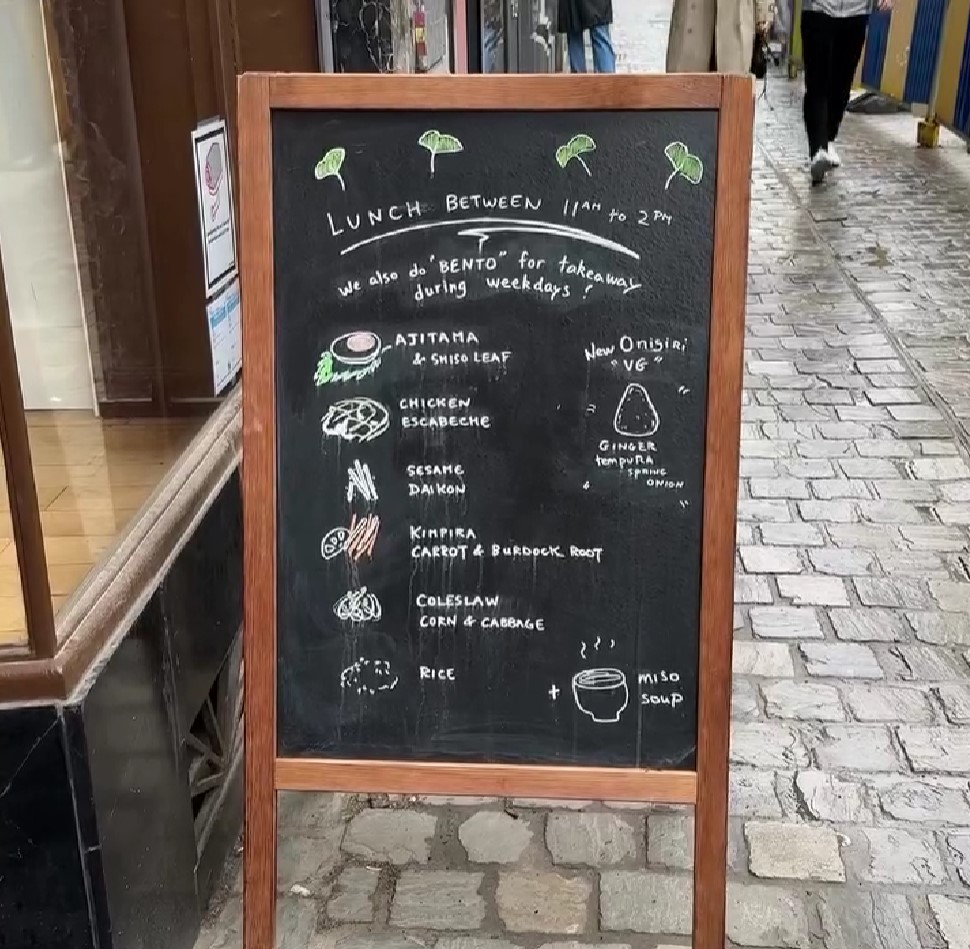 LUNCH BETWEEN 11AM to 2PM
we also do "BENTO" for takeaway
during weekdays!
AJITAMA
& SHISO LEAF
CHICKEN
ESCABECHE
SESAME
DAIKON
KIMPIRA
CARROT & BURDOCK ROOT
COLESLAW
CORN & CABBAGE
RICE
New Onigiri
"VG"
GINGER
tempURA
SPRING
ONION
+ miso
soup